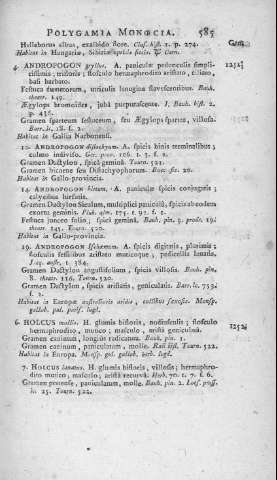 POLYGAMIA MONŒCIA. 585
Helleborus albus, exalbido flore. Cluf. hist. 1. p. 274.
Habitat in Hungariæ, Sibiriæ
4. ANDROPOGON gryllus. A. paniculæ pedunculis simplicissimis, trifloris; flosculo hermaphrodito aristato, ciliato,
basi barbato.
Festuca dumetorum, utriculis lanugine flavescentibus. Bauh.
theatr. 149.
Ægylops bromoides, jubâ purpurascente. J. Bauh. hist. 2.
p. 438.
Gramen sparteum festuceum, seu Ægylops sparsa, villosa.
Barr. Ic. 18. f. 2.
Habitat in Gallia Narbonensi.
10. ANDROPOGON distachyum. A. spicis binis terminalibus;
culmo indiviso. Ger. prov. 106. t. 3. f. 2.
Gramen Dactylon, spicâ geminâ. Tourn. 521.
Gramen bicorne seu Distachyophorum. Bocc. sic. 20.
Habitat in Gallo-provincia.
14. ANDROPOGON hirtum. A. paniculæ spicis conjugatis;
calycibus hirsutis.
Gramen Dactylon Siculum, multiplici paniculâ, spicis ab eodem
exortu geminis. Pluk. alm. 175. t. 92. f. 1.
Festuca junceo folio, spicâ geminâ. Bauh. pin. 9. prodr. 19.
theatr. 145. Tourn. 520.
Habitat in Gallo-provincia.
19. ANDROPOGON Ischæmum. A. spicis digitatis, plurimis;
flosculis sessilibus aristato muticoque, pedicellis lanatis.
Jacq. austr. t. 384.
Gramen Dactylon angustifolium, spicis villosis. Bauh. pin.
8. theatr. 116. Tourn. 520.
Gramen Dactylon, spicis aristatis, geniculatis. Barr. Ic. 753.
f. 2.
Habitat in Europæ australioris aridis, collibus saxosis. Monsp.
gallob. pal. paris. lugd.
6. HOLCUS mollis. H. glumis bifloris, nudiusculis; flosculo
hermaphrodito, mutico; masculo, aristâ geniculatâ.
Gramen caninum, longiùs radicatum. Bauh. pin. 1.
Gramen caninum, paniculatum, molle. Raii hist. Tourn. 522.
Habitat in Europa. Monsp. gal. gallob. burb. lugd.
7. HOLCUS lanatus. H. glumis bifloris, villosis; hermaphrodito mutico; masculo, aristâ recurvâ. Hud. 70. t. 7. f. 6.
Gramen pratense, paniculatum, molle. Bauh. pin. 2. Loes. pruss.
111. 25. Tourn. 522.
1251
1252